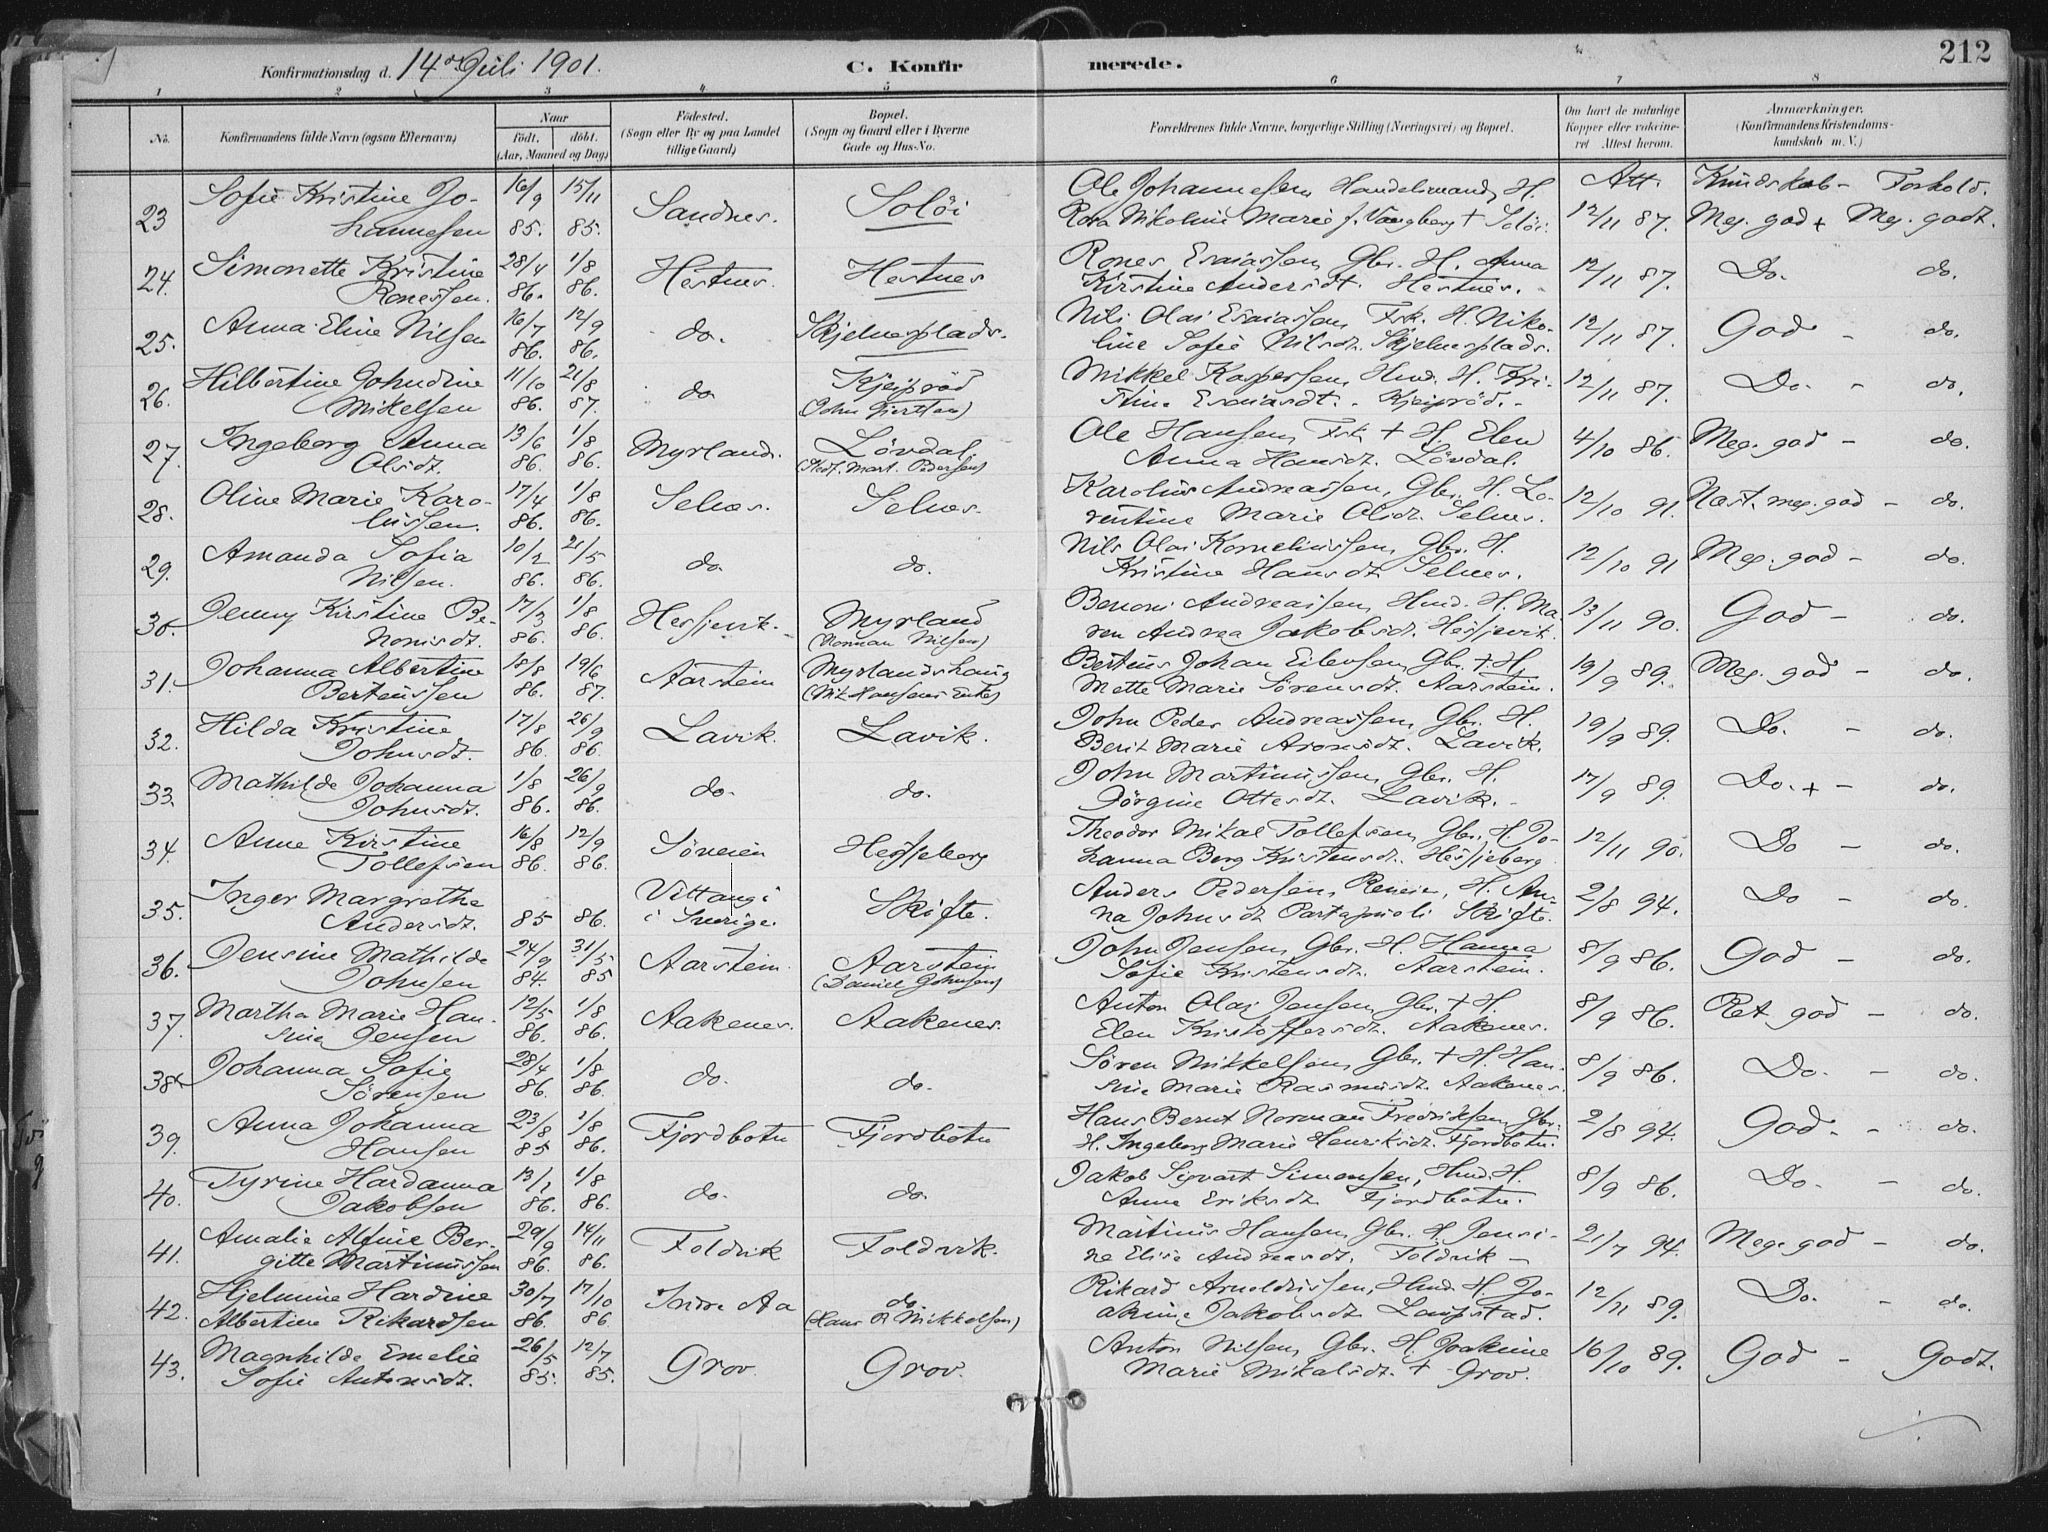 212
Konfirmationsdag d. 14de Juli 1901. C. Konfirmerede.
1 2 3 4 5 6 7 8
No. Konfirmandens fulde Navn (ogsaa Efternavn) Naar födt. döbt. (Aar, Maaned og Dag) Födested. (Sogn eller By og paa Landet tillige Gaard) Bopæl. (Sogn og Gaard eller i Byerne Gade og Hus-No. Forældrenes fulde Navne, borgerlige Stilling (Næringsvei) og Bopæl. Om havt de naturlige Kopper eller vakcineret Attest herom. Anmærkninger. (Konfirmandens Kristendomskundskab m. V.)
Sofie Kristine Jo- 16/9 15/11 Sandnes. Solöi Ole Johannesen, Handelsmand, H. Att. Kundskab - Forhold.
23 hannesen 85. 85. Rosa Nikoline Marie f. Vangberg + Solöi. 12/11 87. Meg. god + Meg. godt.
Simonette Kristine 28/4 1/8 Hestnes. Hestnes Rones Esaiassen, Gbr. H. Anna
24. Ronessen. 86. 86. Kirstine Andersdt. Hestnes. 12/11 87. Do. do.
Anna Eline Nilsen 16/7 12/9 do. Skjelnesplads. Nils Olai Esaiassen, Fsk. H. Niko-
25. 86. 86. line Sofie Nilsdt. Skjelnesplads. 12/11 87. God - do.
Hilbertine Johndine 11/10 21/8 do Kjeipröd Mikkel Kaspersen, Hmd. H. Kri-
26. Mikelsen 86. 87. (John Gjertsen) stine Esaiasdt. - Kjeipröd. - 12/11 87. Do. - do.
Ingeborg Anna 13/6 1/8 Myrland. Lövdal. Ole Hansen, Fsk + H. Elen
27. Olsdt. 86. 86. (Hedl. Mart. Pedersen) Anna Hansdt. Lövdal. 4/10 86. Meg. god - do.
Oline Marie Karo- 17/4 1/8 Selnes. Selnes. Karolius Andreassen, Gbr. H. Lo-
28. liussen. 86. 86. rentine Marie Olsdt. Selnes. 12/10 91. Næst. meg. god - do.
Amanda Sofia 10/2 21/5 do do. Nils Olai Korneliussen, Gbr. H.
29. Nilsen. 86. 86. Kristine Hansdt. Selnes. 12/10 91 Meg. god - do.
Jenny Kirstine Be- 17/3 1/8 Hessjevik. Myrland Benoni Andreassen, Hmd. H. Ma-
30. nonisdt. 86. 86. (Norman Nilsen) ren Andrea Jakobsdt. Hessjevik. 13/11 90. God - do.
Johanna Albertine 18/8 19/6 Aarstein Myrlandshaug Berteus Johan Eilevsen, Gbr. + H.
31. Berteussen 86. 87. (Nik Hansens Enke) Mette Marie Sörensdt. Aarstein. 19/9 89. Meg. god - do.
Hilda Kristine 17/8 26/9 Lavik. Lavik. John Peder Andreassen, Gbr. H.
32. Johnsdt. 86. 86. Berit Marie Aronsdt. Lavik. 19/9 89. Do. - do.
Mathilde Johanna 1/8 26/9 do. do. John Martinussen, Gbr. H.
33. Johnsdt. 86. 86. Jörgine Ottesdt. Lavik. - 17/9 89. Do. + - do.
Anne Kirstine 16/8 12/9 Söveien Hesseberg Theodor Mikal Tollefsen, Gbr. H. Jo-
34. Tollefsen 86. 86. hanna Berg Kristensdt. Hessjeberg. 12/11 90. Do - do.
Inger Margrethe Vittangi Anders Pedersen, H. An-
35. Andersdt. 85 86. i Sverige. Skifte. na Johnsdt Skifte. 2/8 94. Do - do.
Jensine Mathilde 24/9 31/5 Aarstein. Aarstein John Jensen, Gbr. H. Hanna
36. Johnsen 84. 85 (Daniel Johnsen) Sofie Kristensdt. Aarstein. 8/9 86. God - do.
Martha Marie Han- 12/5 1/8 Aakenes. Aakenes. Anton Olai Jensen, Gbr. + H.
37. sine Jensen 86. 86. Elen Kristoffersdt. Aakenes. 8/9 86. Ret god - do.
Johanna Sofie 28/4 1/8 do. do. Sören Mikkelsen, Gbr. + H. Han-
38. Sörensen 86. 86. sine Marie Rasmusdt. Aakenes. 8/9 86. Do. - do.
Anna Johanna 23/8 1/8 Fjordbotn Fjordbotn Hans Bernt Norman Fredriksen, Gbr.
39. Hansen 85 86. H. Ingeborg Marie Henriksdt. Fjordbotn. 2/8 94. God - do.
Tyrine Hardanna 13/1 1/8 do. do. Jakob Sigvart Simonsen, Hmd. H.
40. Jakobsen 86. 86. Anne Eriksdt. Fjordbotn. 8/9 86. Do. - do.
Amalie Alfine Ber- 29/9 14/11 Foldvik Foldvik. Martinus Hansen, Gbr. H. Jensi-
41. gitte Martinussen 86. 86. ne Elise Andreasdt. Foldvik - 21/7 94. Meg. god - do.
Hjelmine Hardine 30/7 17/10 Indre Aa do. Rikard Arnoldussen, Hmd. H. Jo-
42. Albertine Rikardsen 86. 86. (Hans P. Mikkelsen) akime Jakobsdt. Laupstad. 12/11 89. Do. - do.
Magnhilde Emelie 26/5 12/7 Grov. Grov. Anton Nilsen, Gbr. H. Joakime
43. Sofie Antonsdt. 85. 85. Marie Mikalsdt. + Grov. 16/10 89. God - Godt.